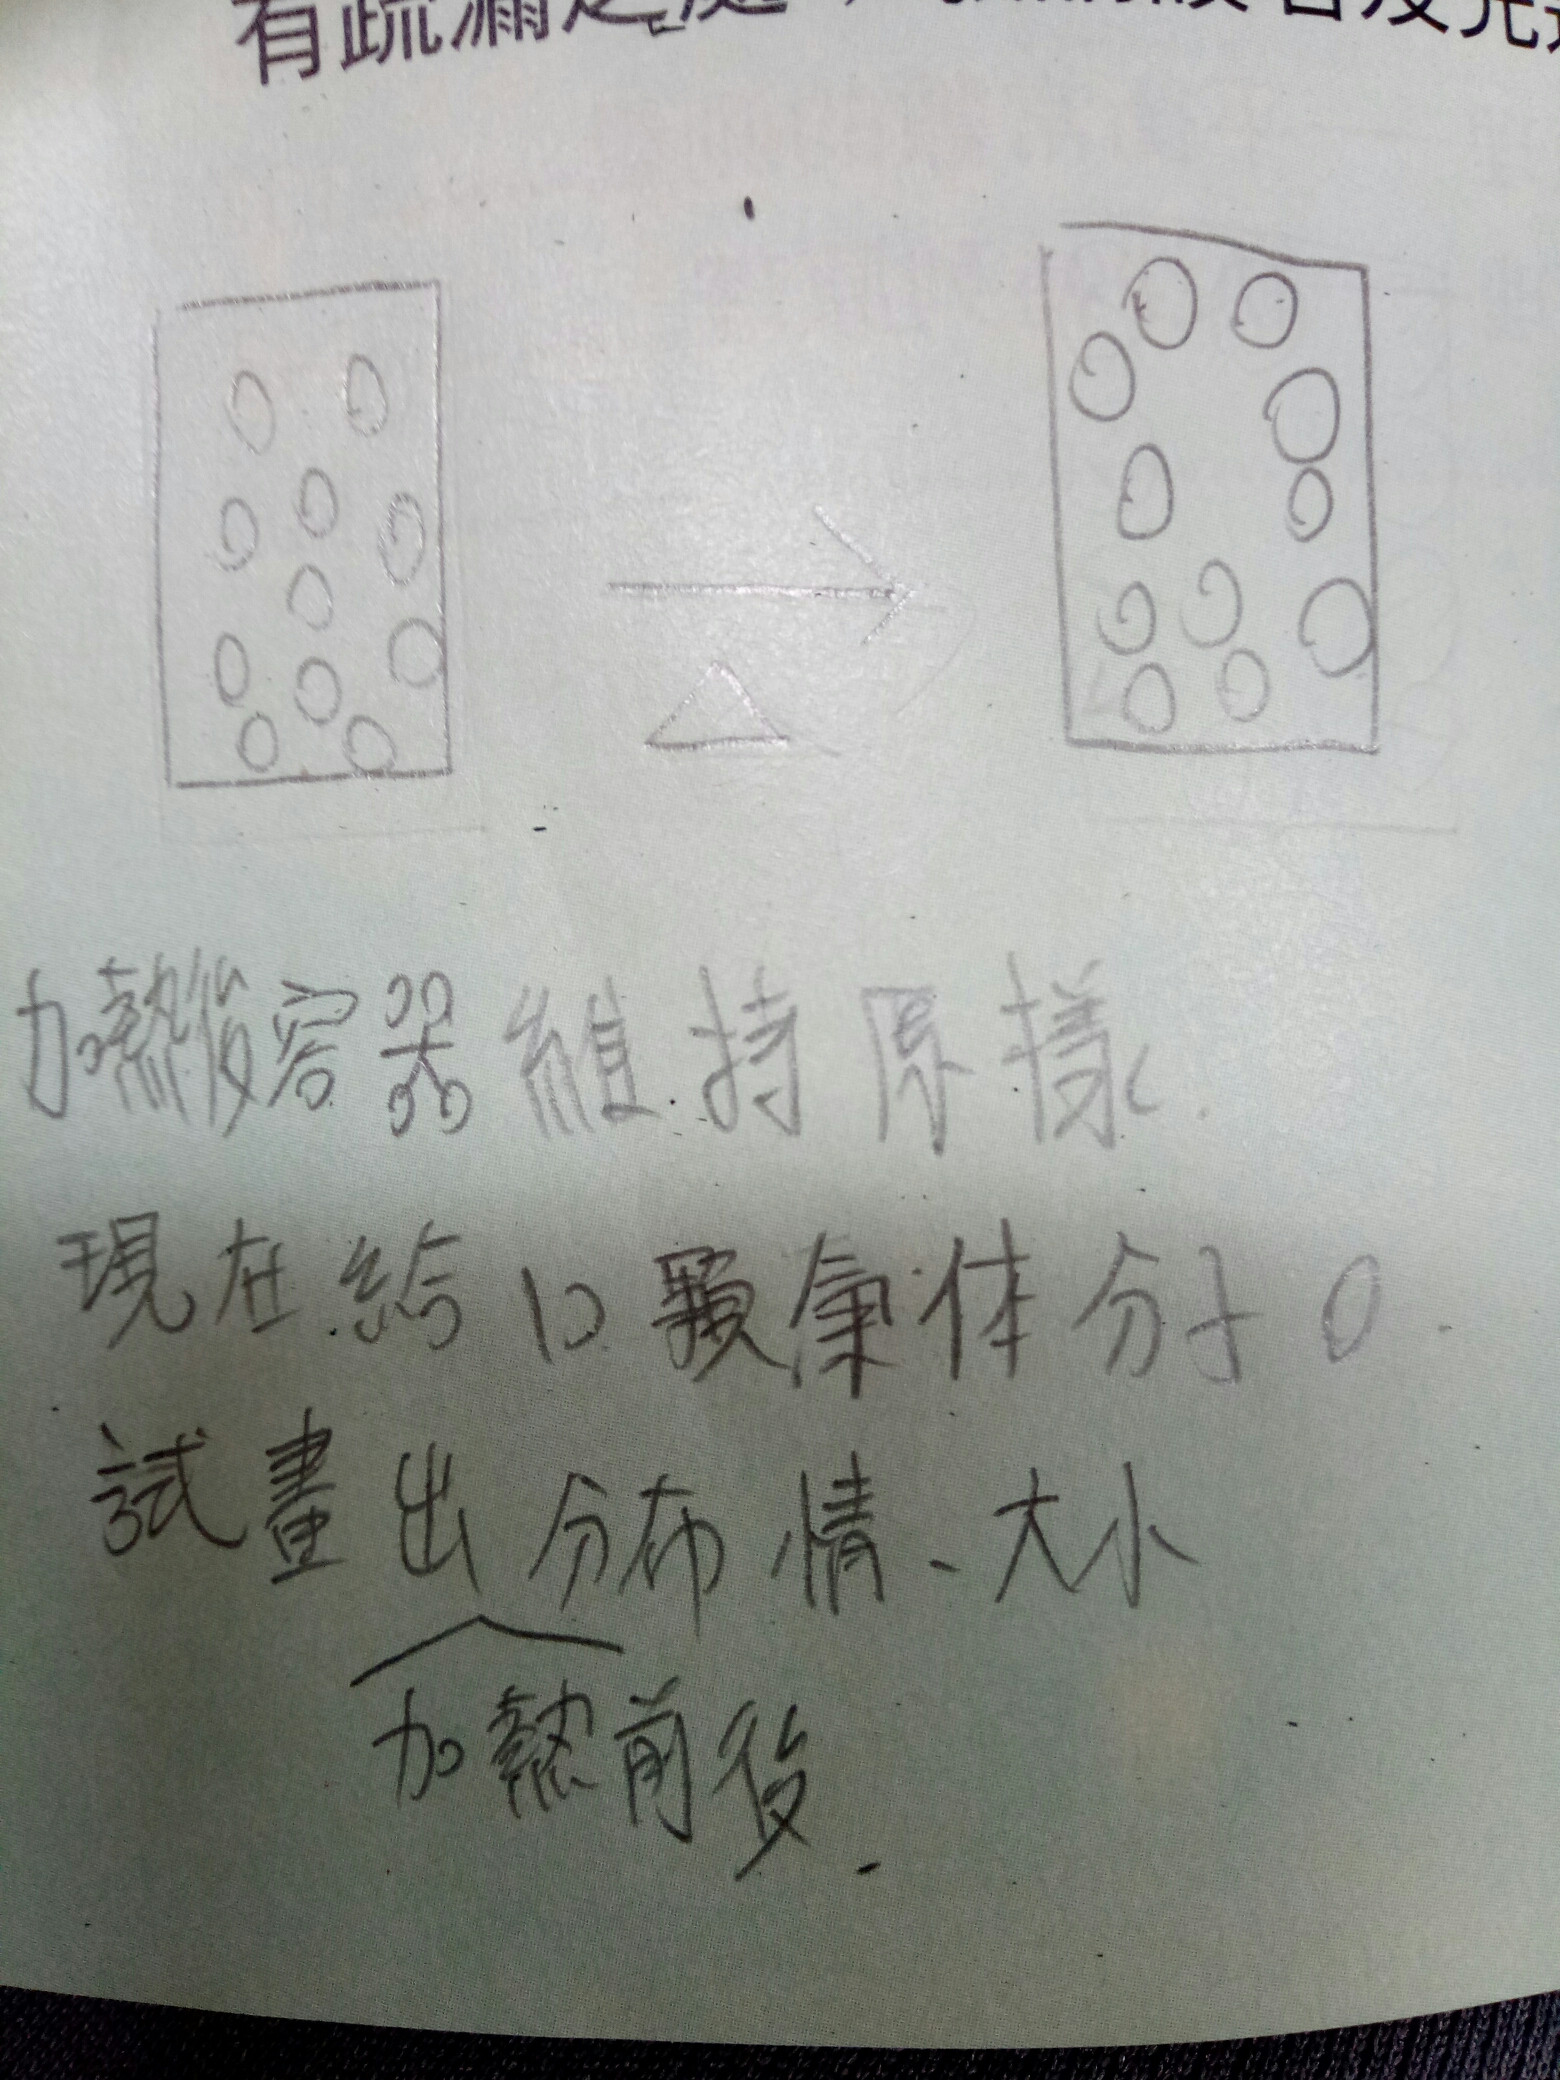 有疏漏之處
加熱後容器維持原樣.
現在給10顆氣体分子O.
試畫出分布情、大小
加熱前後.